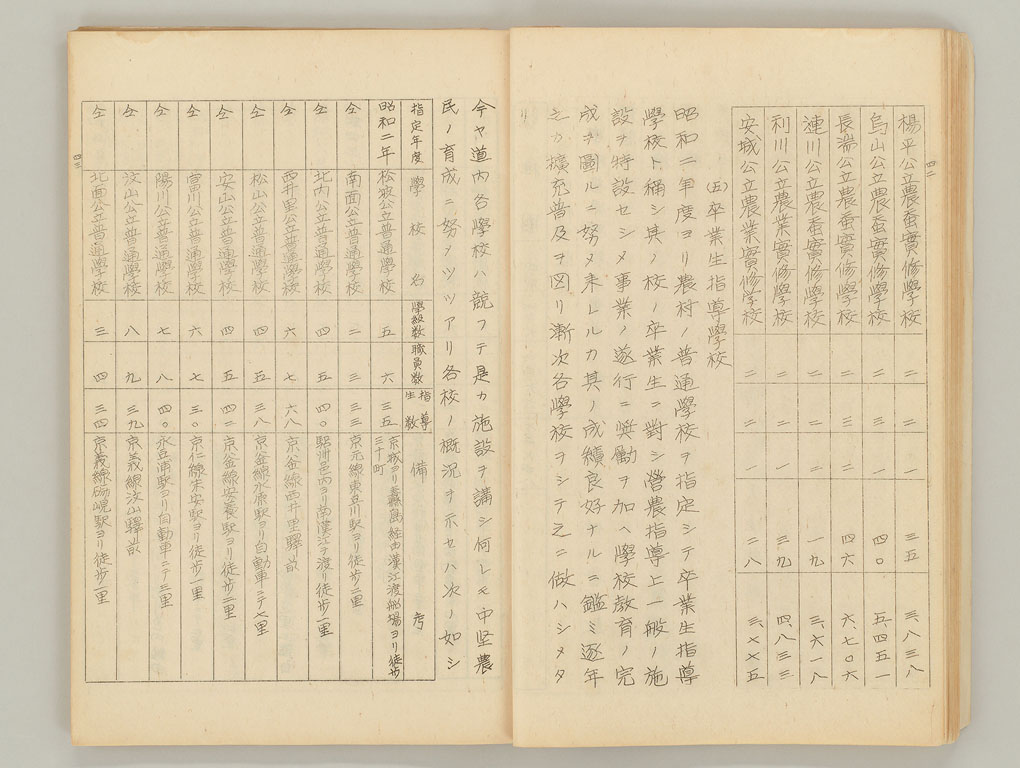 四二
楊平公立農蚕實修學校 二 二 一 三五 三、八三八
烏山公立農蚕實修學校 二 二 一 四〇 五、四五一
長湍公立農蚕實修學校 二 三 二 四六 六、七〇六
漣川公立農蚕實修學校 二 二 一 一九 三、六一八
利川公立農業實修學校 二 二 一 三九 四、八三三
安城公立農業實修学校 二 二 一 二八 三、七七五
(五)卒業生指導學校
昭和二年度ヨリ農村ノ普通學校ヲ指定シテ卒業生指導
學校ト稱シ其ノ校ノ卒業生ニ對シ營農指導上一般ノ施
設ヲ特設セシメ事業ノ遂行ニ奬勵ヲ加ヘ學校教育ノ完
成ヲ圖ルニ努メ来レルカ其ノ成績良好ナルニ鑑ミ逐年
之カ擴充普及ヲ図リ漸次各學校ヲシテ之ニ做ハシメタ
リ
今ヤ道内各學校ハ競フテ是カ施設ヲ講シ何レモ中堅農
民ノ育成ニ努メツツアリ各校ノ概況ヲ示セハ次ノ如シ
指定年度 學校名 學級数 職員数 指導生数 備考
昭和二年 松坡公立普通學校 五 六 三五 京城ヨリ纛島経由漢江渡船場ヨリ徒歩三十町
仝 南面公立普通學校 二 三 三三 京元線東豆川駅ヨリ徒歩二里
仝 北内公立普通學校 四 五 四〇 驪州邑内ヨリ南漢江ヲ渡リ徒歩一里
仝 西井里公立普通學校 六 七 六八 京釜線西井里驛前
仝 松山公立普通學校 四 五 三八 京釜線水原駅ヨリ自動車ニテ七里
仝 安山公立普通學校 四 五 四二 京釜線安養駅ヨリ徒歩二里
仝 富川公立普通學校 六 七 三〇 京仁線朱安駅ヨリ徒歩一里
仝 陽川公立普通學校 七 八 四〇 永登浦駅ヨリ自動車ニテ三里
仝 汶山公立普通學校 八 九 三九 京義線汶山驛前
仝 北面公立普通學校 三 四 三四 京義線 駅ヨリ徒歩一里
四三